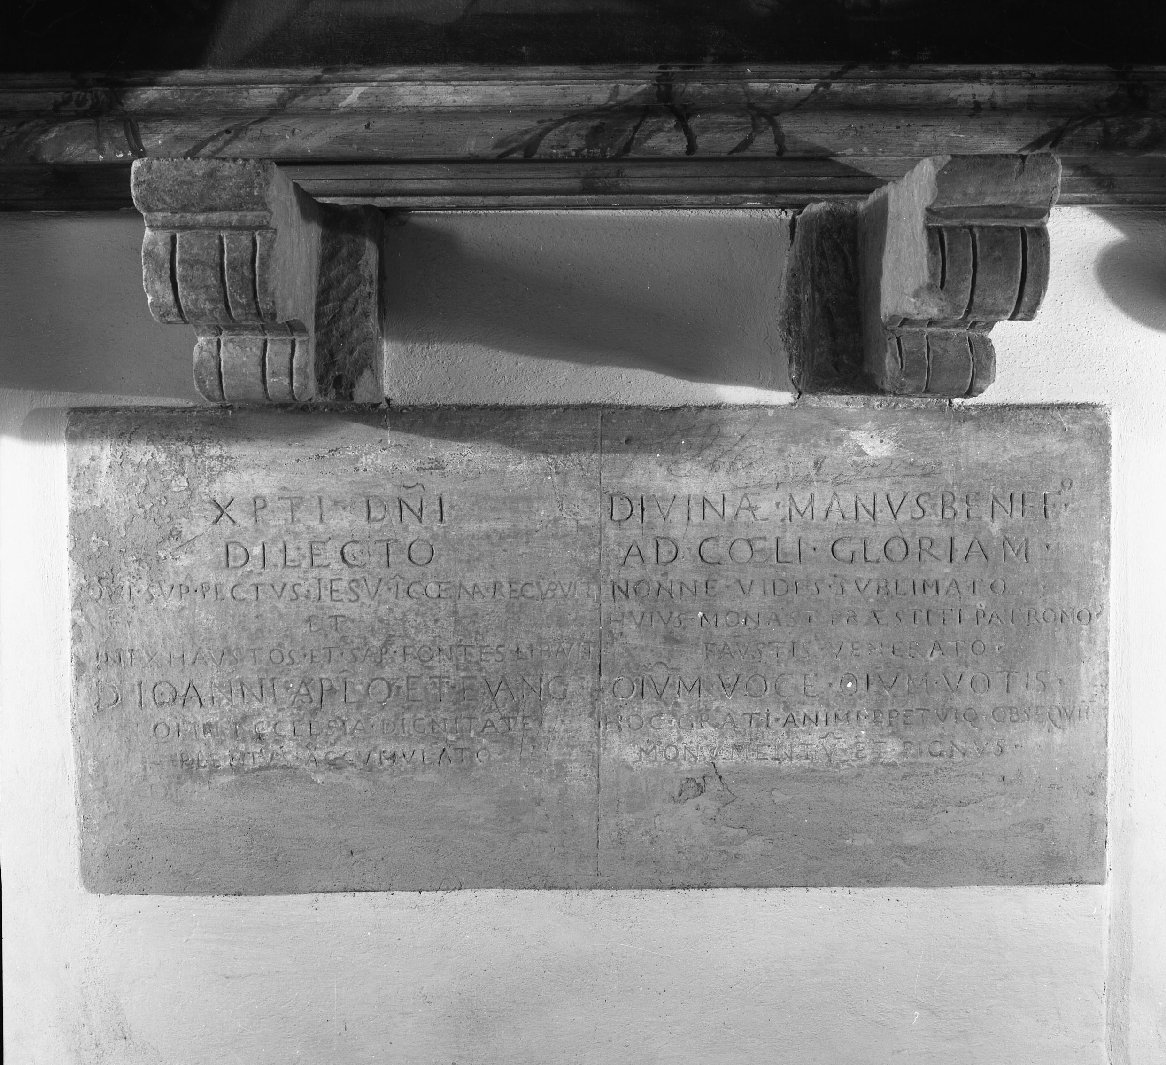 XPTI · DÑI
DILECTO
QVI · SVP · PECTVS · IESV · I CŒNA · RECVBVIT
ET
INEXHAVSTOS · ET · SAP · FONTES · HAVSIT
D · IOANNI · APLO · ET · EVANG
OMNI · ECCLESIÆ · DIGNITATE
CVMVLATO ·
DIVINA · MANVS · BENEF
AD · CŒLI · GLORIAM ·
NONNE · VIDES · SVBLIMATO
HVIVS · MONAST · PRÆSTITI · PATRONO
FAVSTIS · VENERATO ·
OIVM · VOCE · OIVM · VOTIS ·
HOC · GRATI · ANIMI · PERPETVIQ · OBSEQVII
MONVMENTV · ET · PIGNVS ·